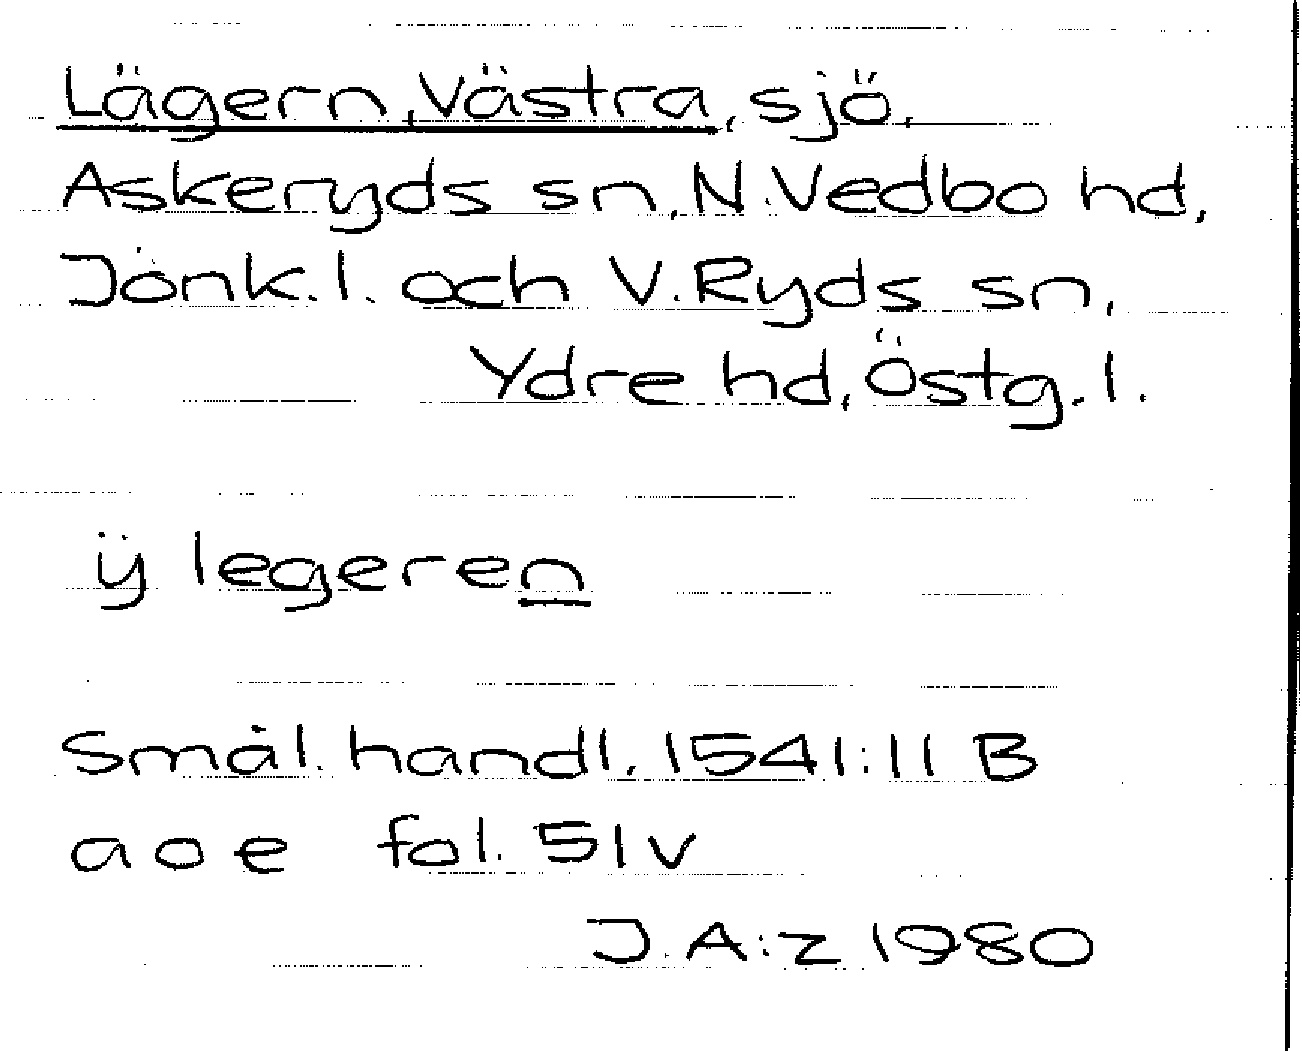 Lägern, Västra, sjö,
Askeryds sn, N. Vedbo hd,
Jönk. l. och V. Ryds sn,
Ydre hd, Östg. l.
ÿ legeren
Smål. handl. 1541:11 B
a o e fol. 51v
J. A:z 1980